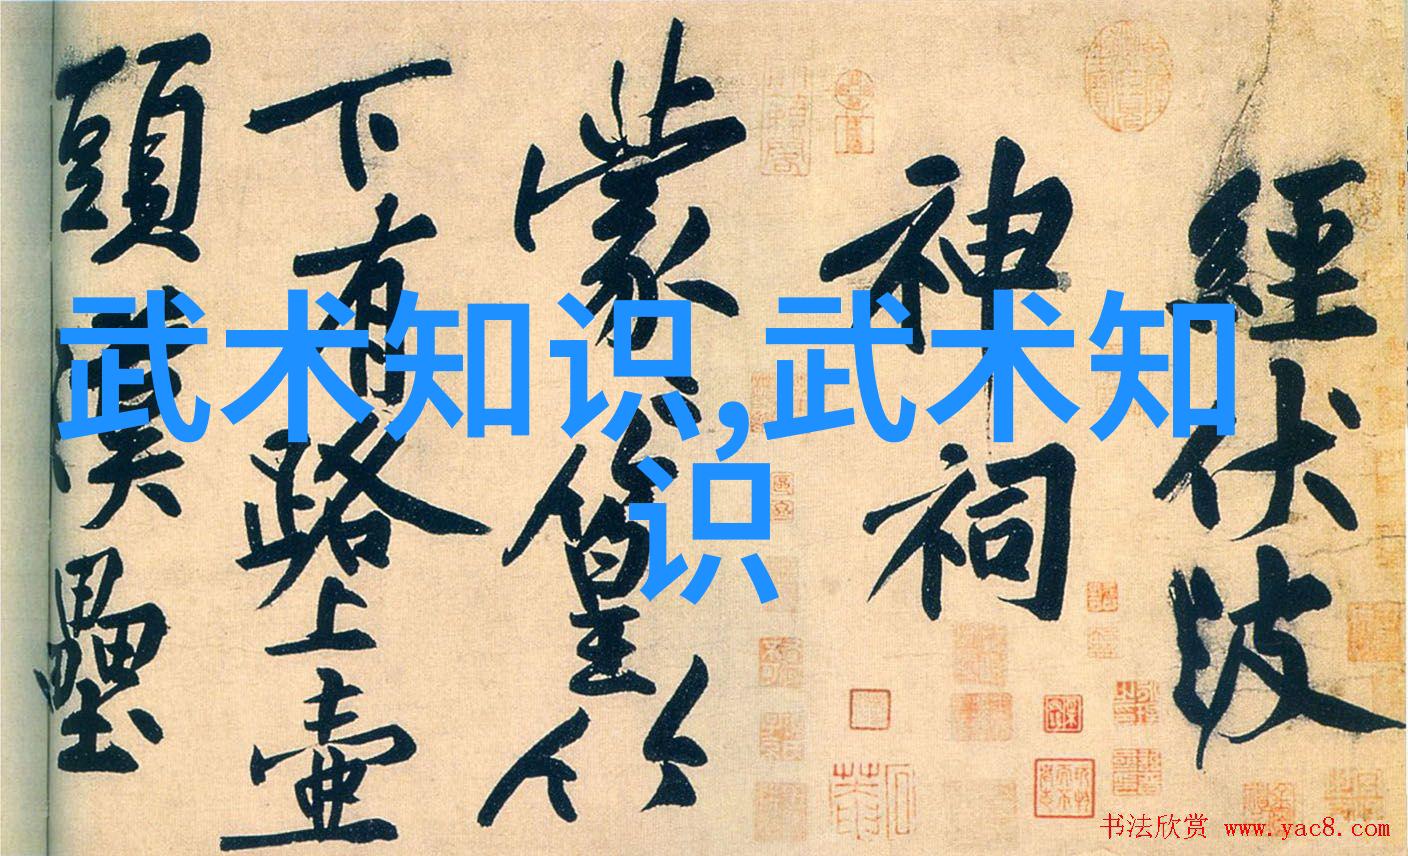 經伏波
神祠
蒙蒙篁竹
下有路上壺
頭漢壘
武术知识,武术知
识
书法欣赏 www.yac8.com